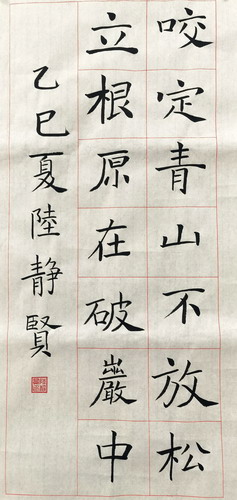 咬定青山不放松
立根原在破巖中
乙巳夏陸静賢